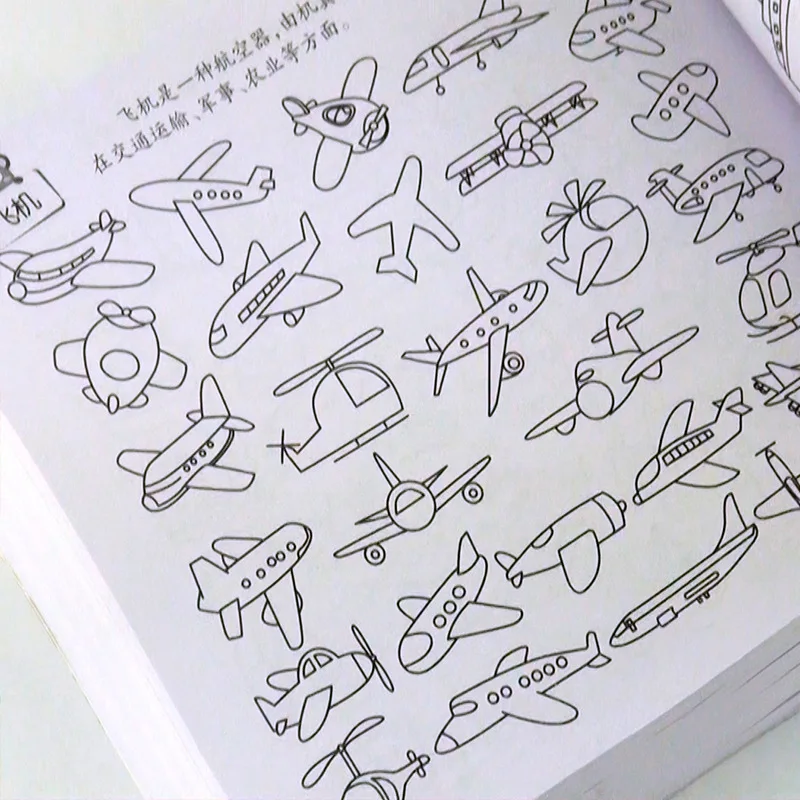 飞机
飞机是一种航空器，由机
在交通运输、军事、农业等方面。